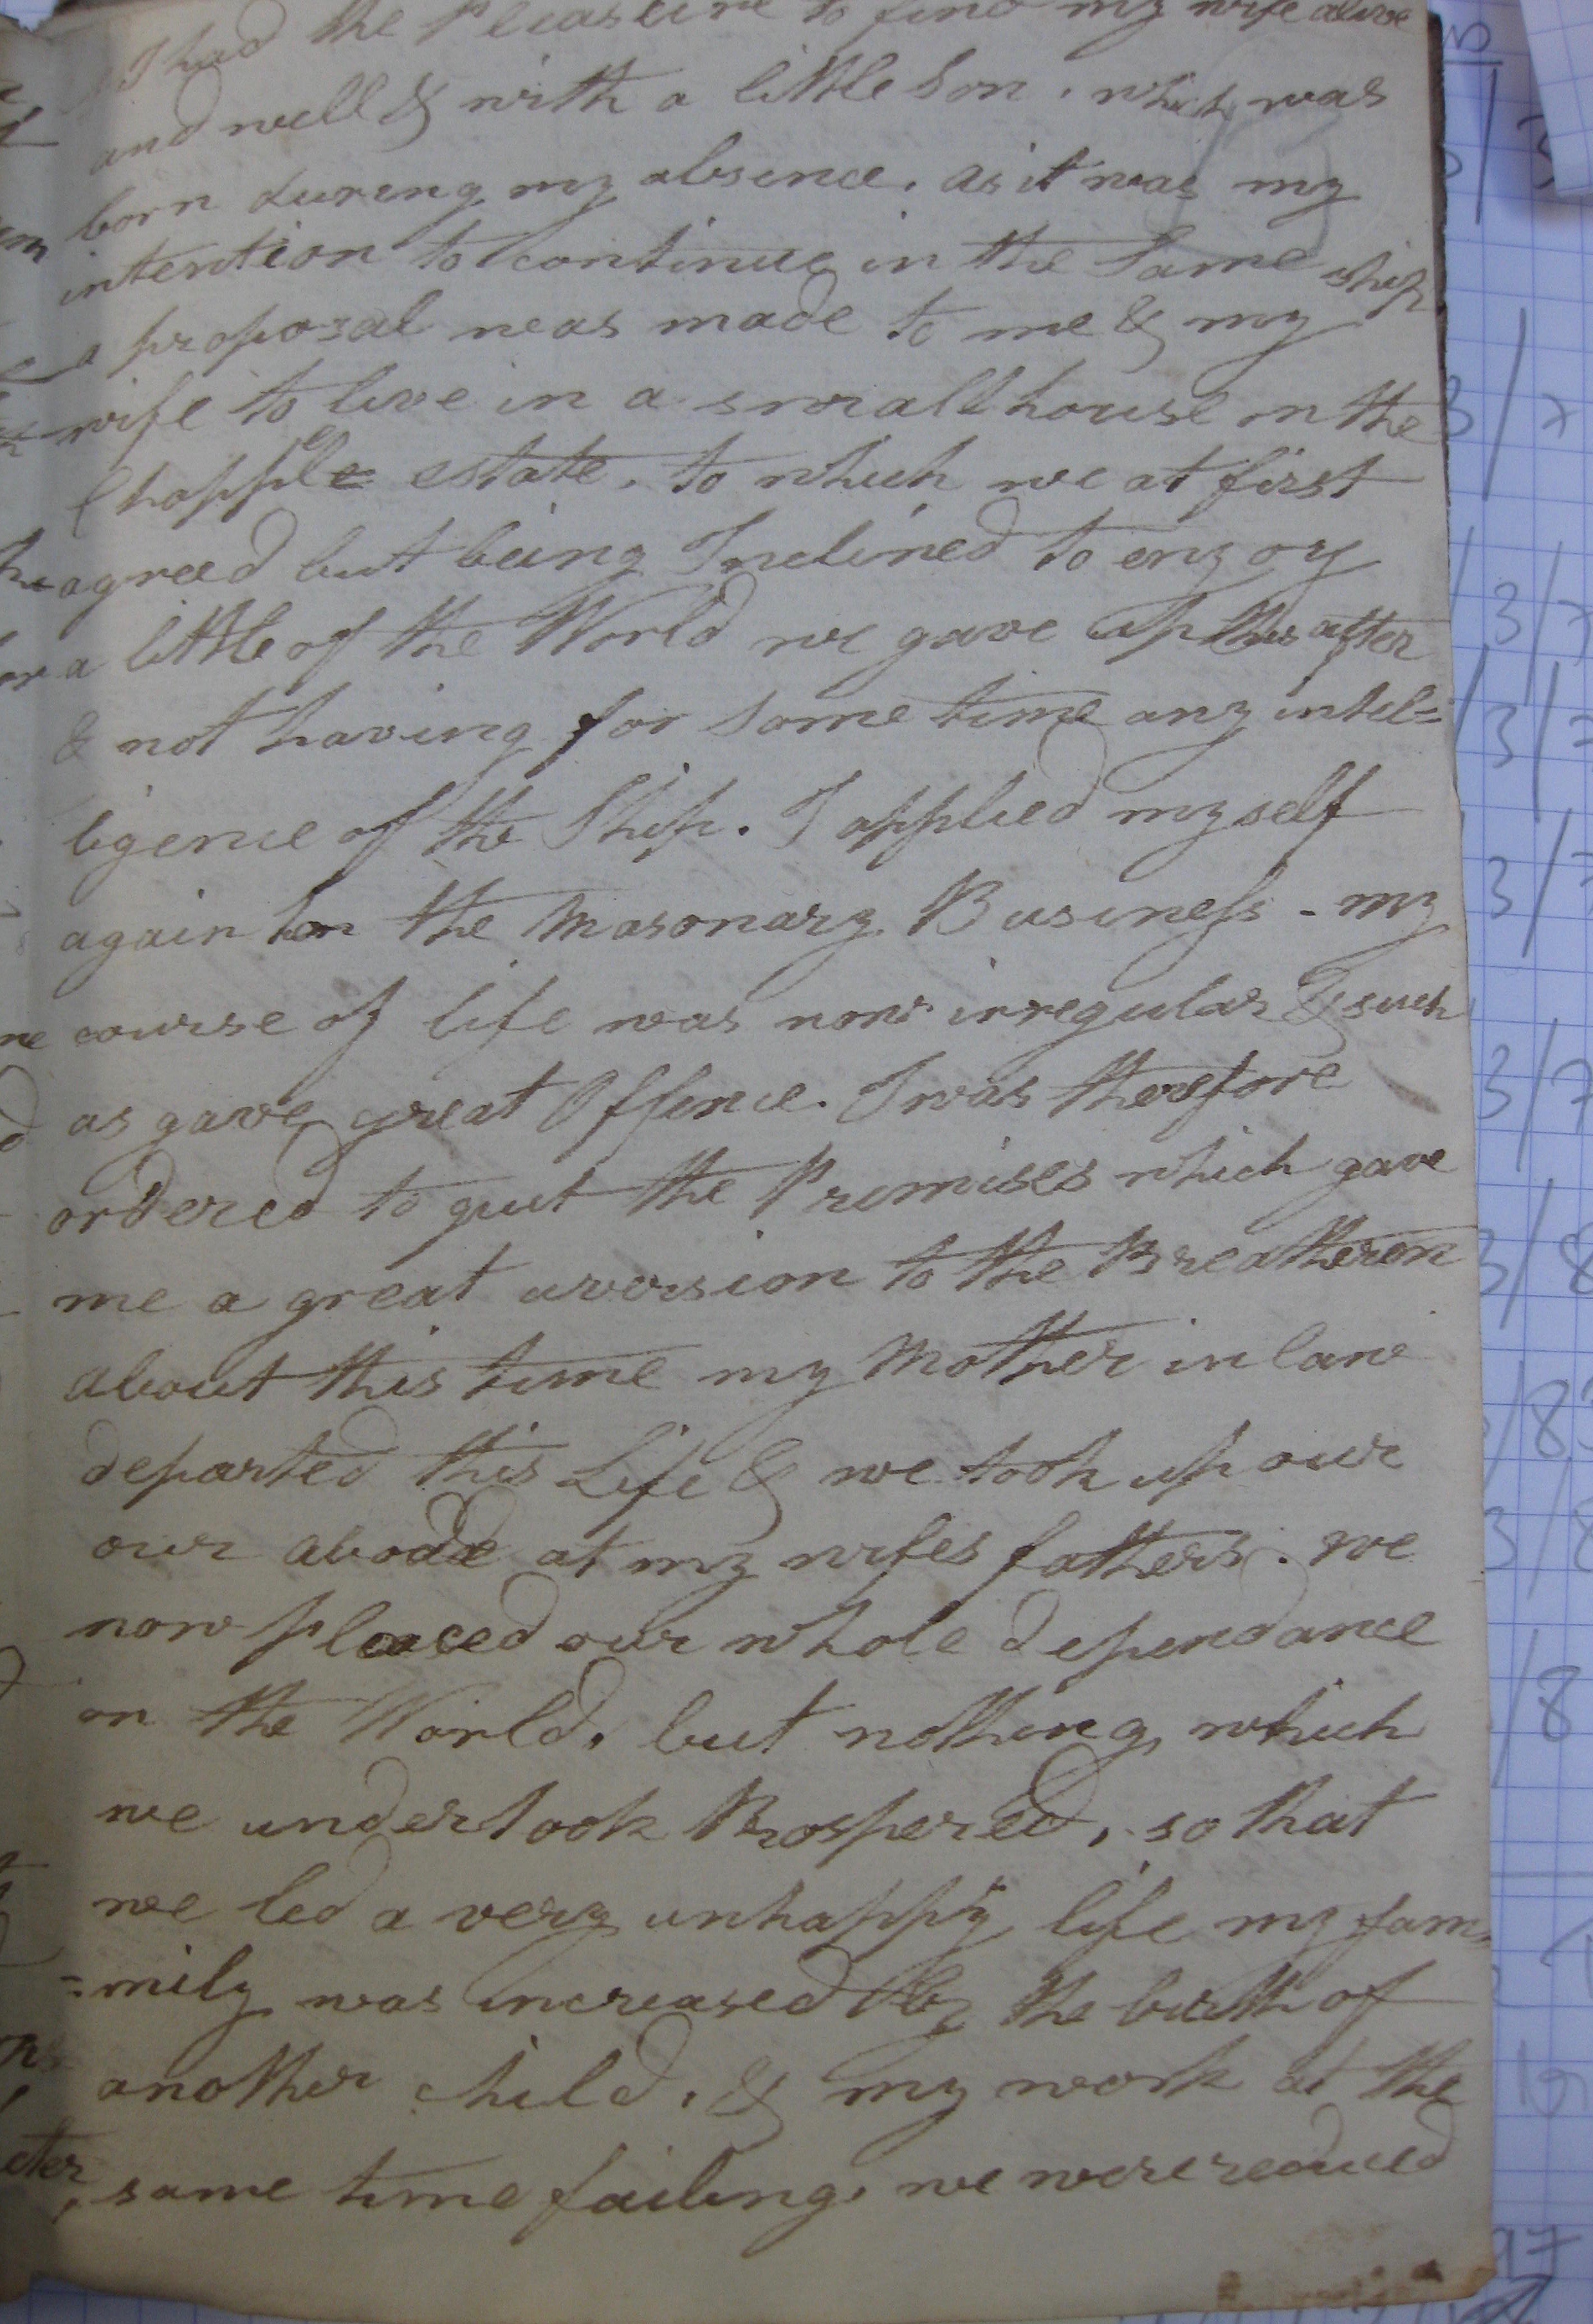 I had the Pleasure to find my wife alive
and well & with a little Son. which was
born during my absence. as it was my
intention to continue in the Same ship
a proposal was made to me & my
wife to live in a small house on the
Chapple estate. to which we at first
agreed but being Inclined to enjoy
a little of the World we gave up this after
& not having for Some time any intel=
ligence of the Ship. I applied myself
again to the Masonary Business - my
course of life was now irregular & such
as gave great Offence. I was therefore
ordered to quit the Premises which gave
me a great aversion to the Breatheren
about this time my Mother in law
departed this Life & we took up our
our abode at my wifes fathers. we
now placed our whole dependance
on the World. but nothing which
we undertook Prospered, so that
we led a very unhappy life my fam=
=mily was increased by the birth of
another child. & my work at the
same time failing. we were reduced